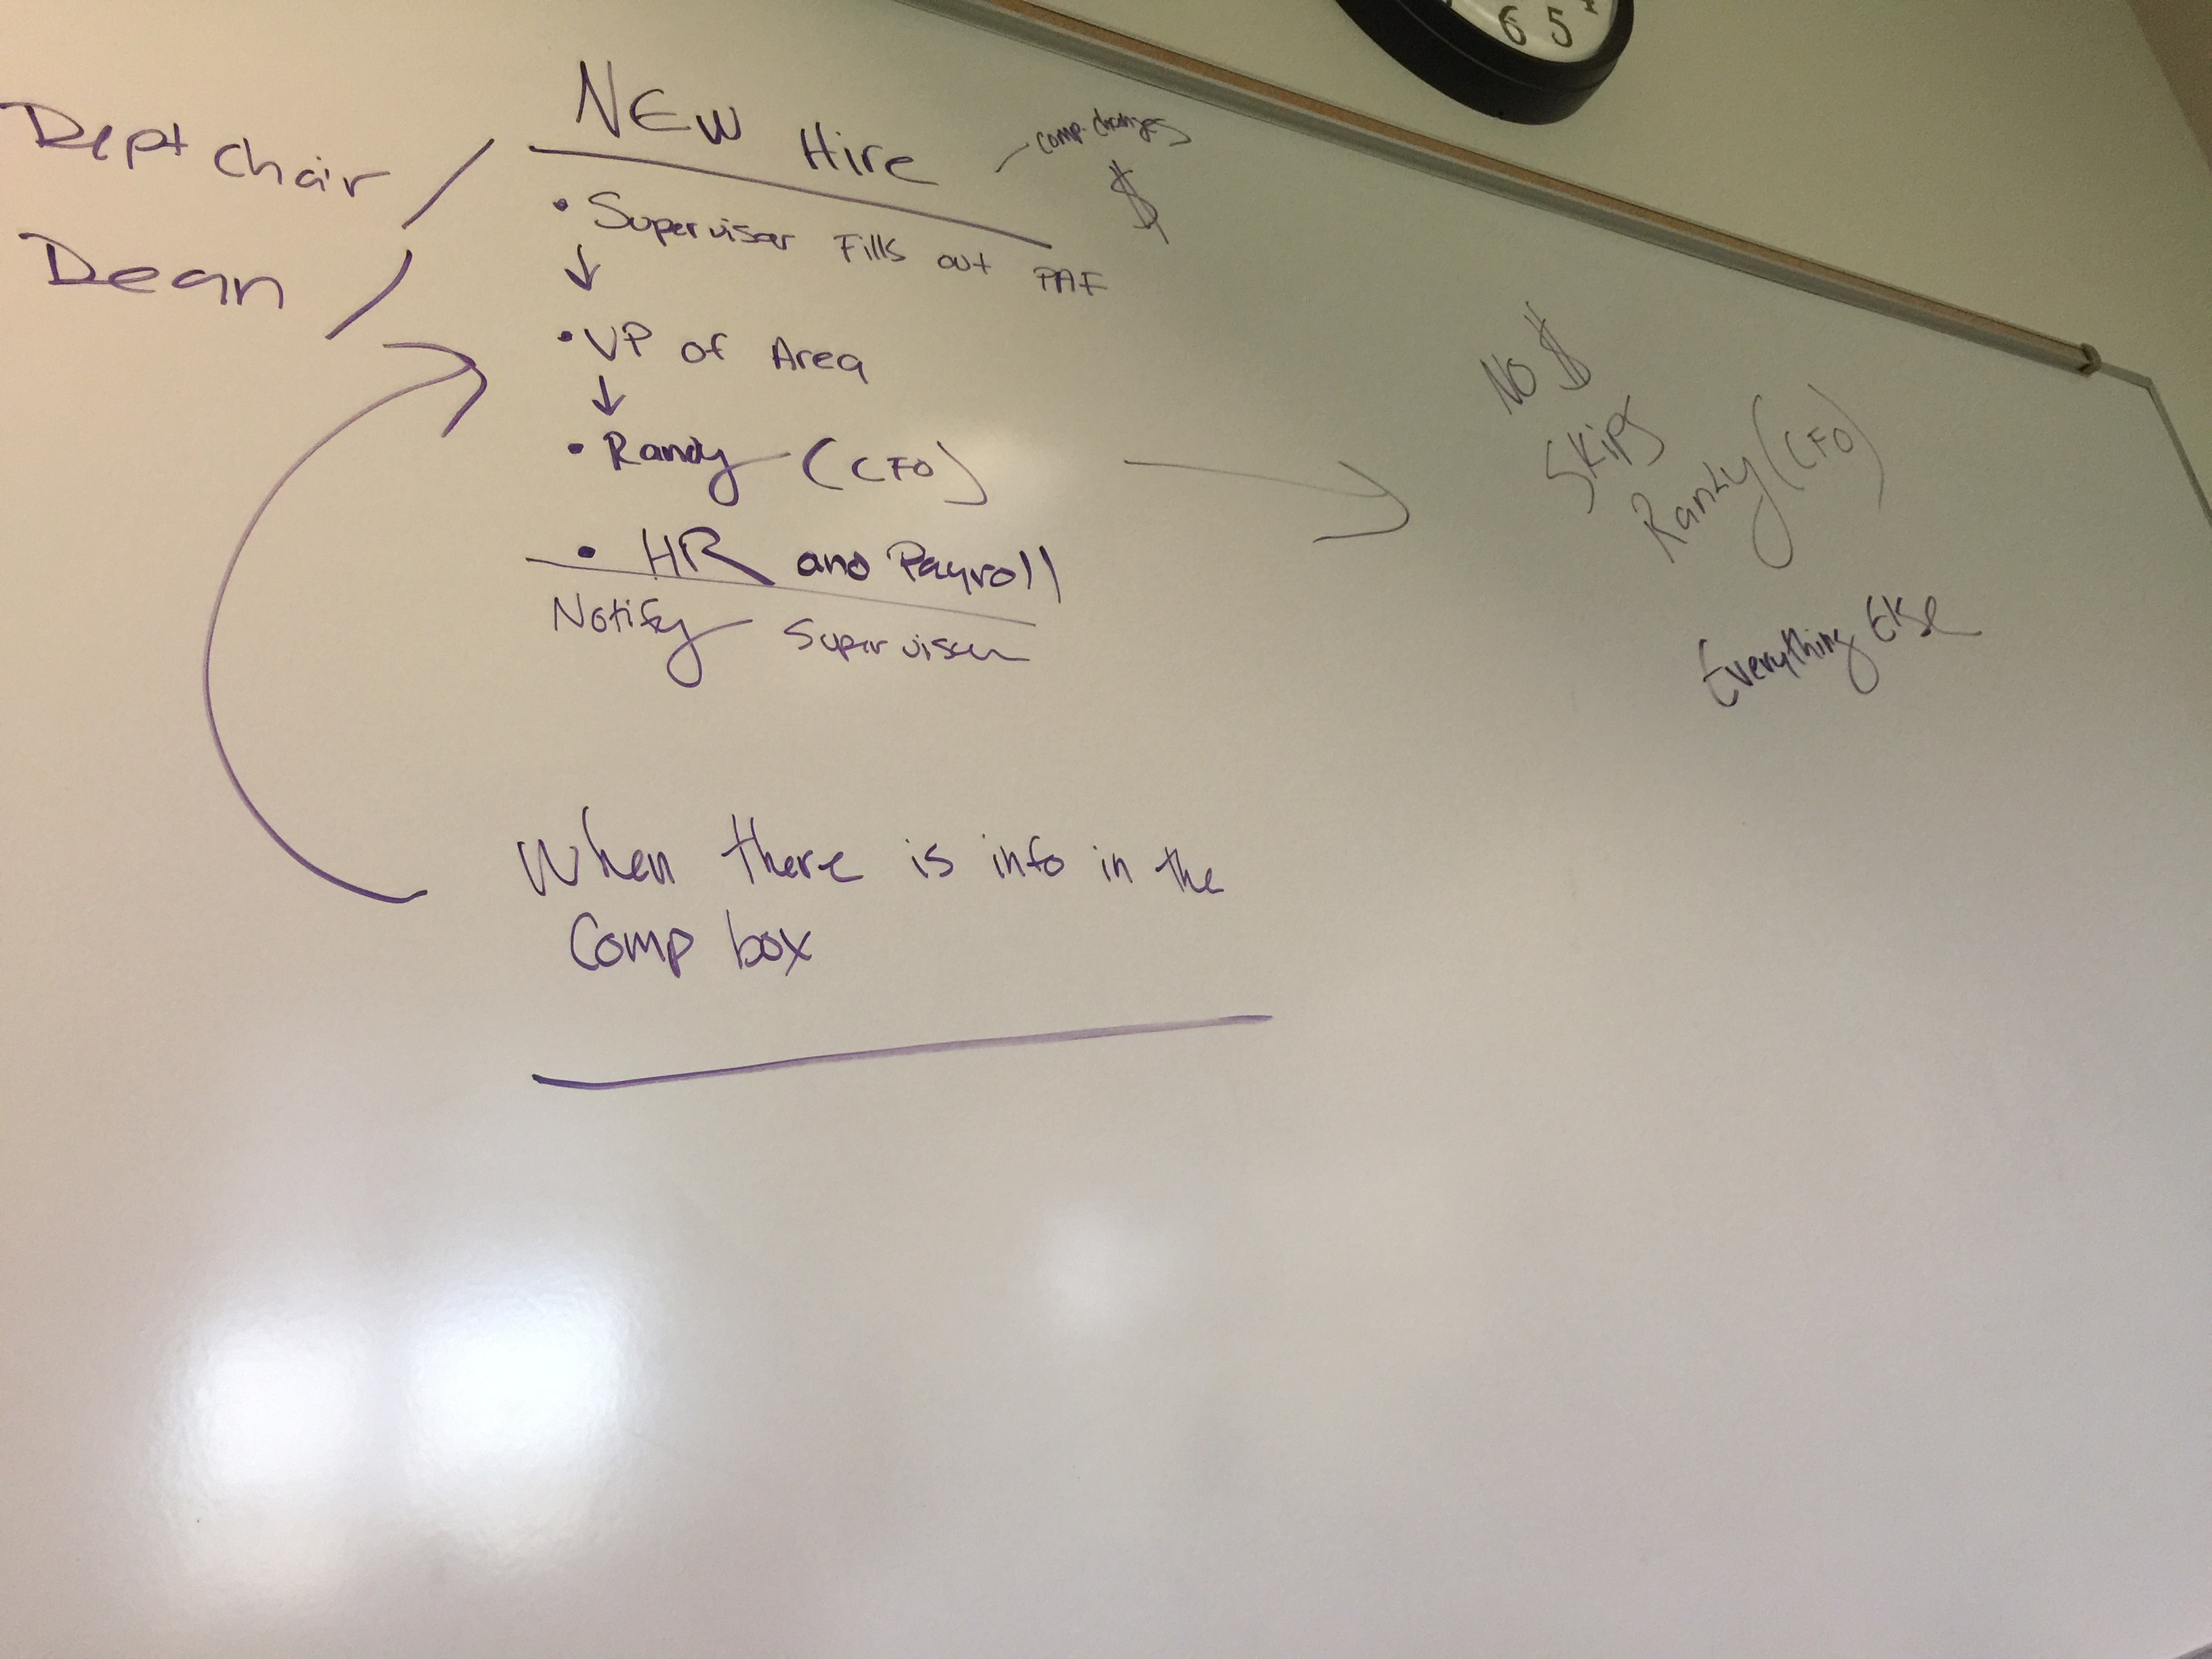 6 5
Dept Chair /
Dean /
NEW Hire - comp. changes
$
• Supervisor Fills out PAF
↓
• VP of Area
↓
• Randy (CFO)
• HR and Payroll
Notify Supervisor
No $
Skips
Randy (CFO)
Everything Else
When there is info in the
Comp box